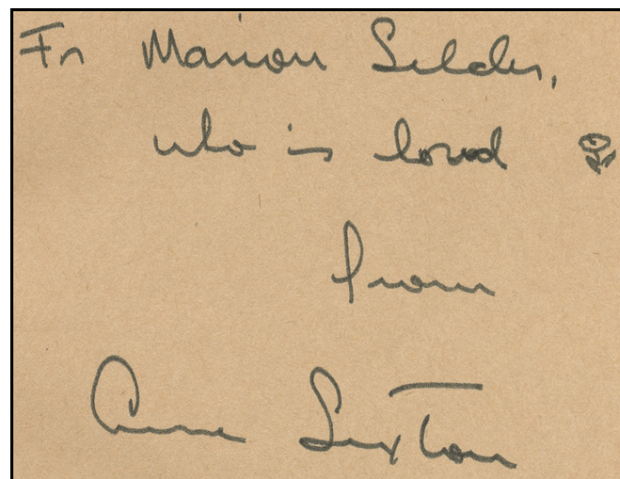 For Marion Seldes,
who is loved
from
Anne Sexton